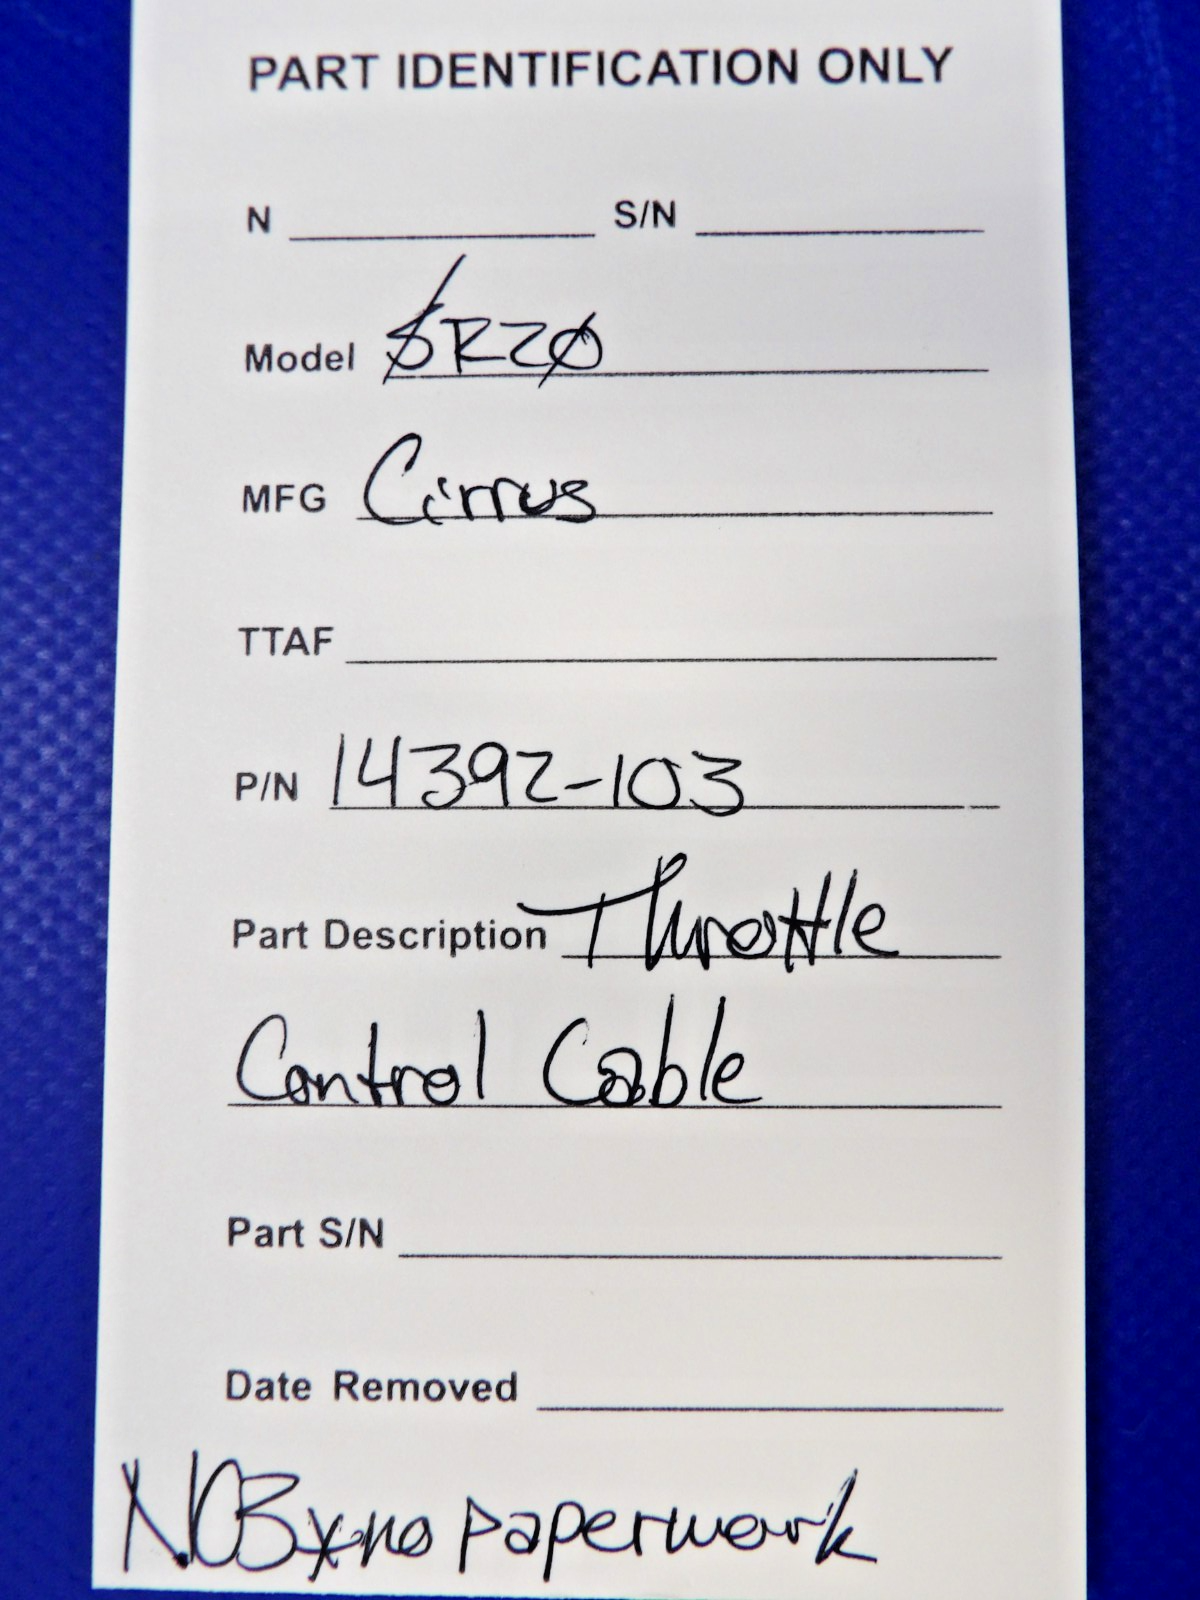 PART IDENTIFICATION ONLY
N S/N
Model SR20
MFG Cirrus
TTAF
P/N 14392-103
Part Description Throttle
Control Cable
Part S/N
Date Removed
no paperwork